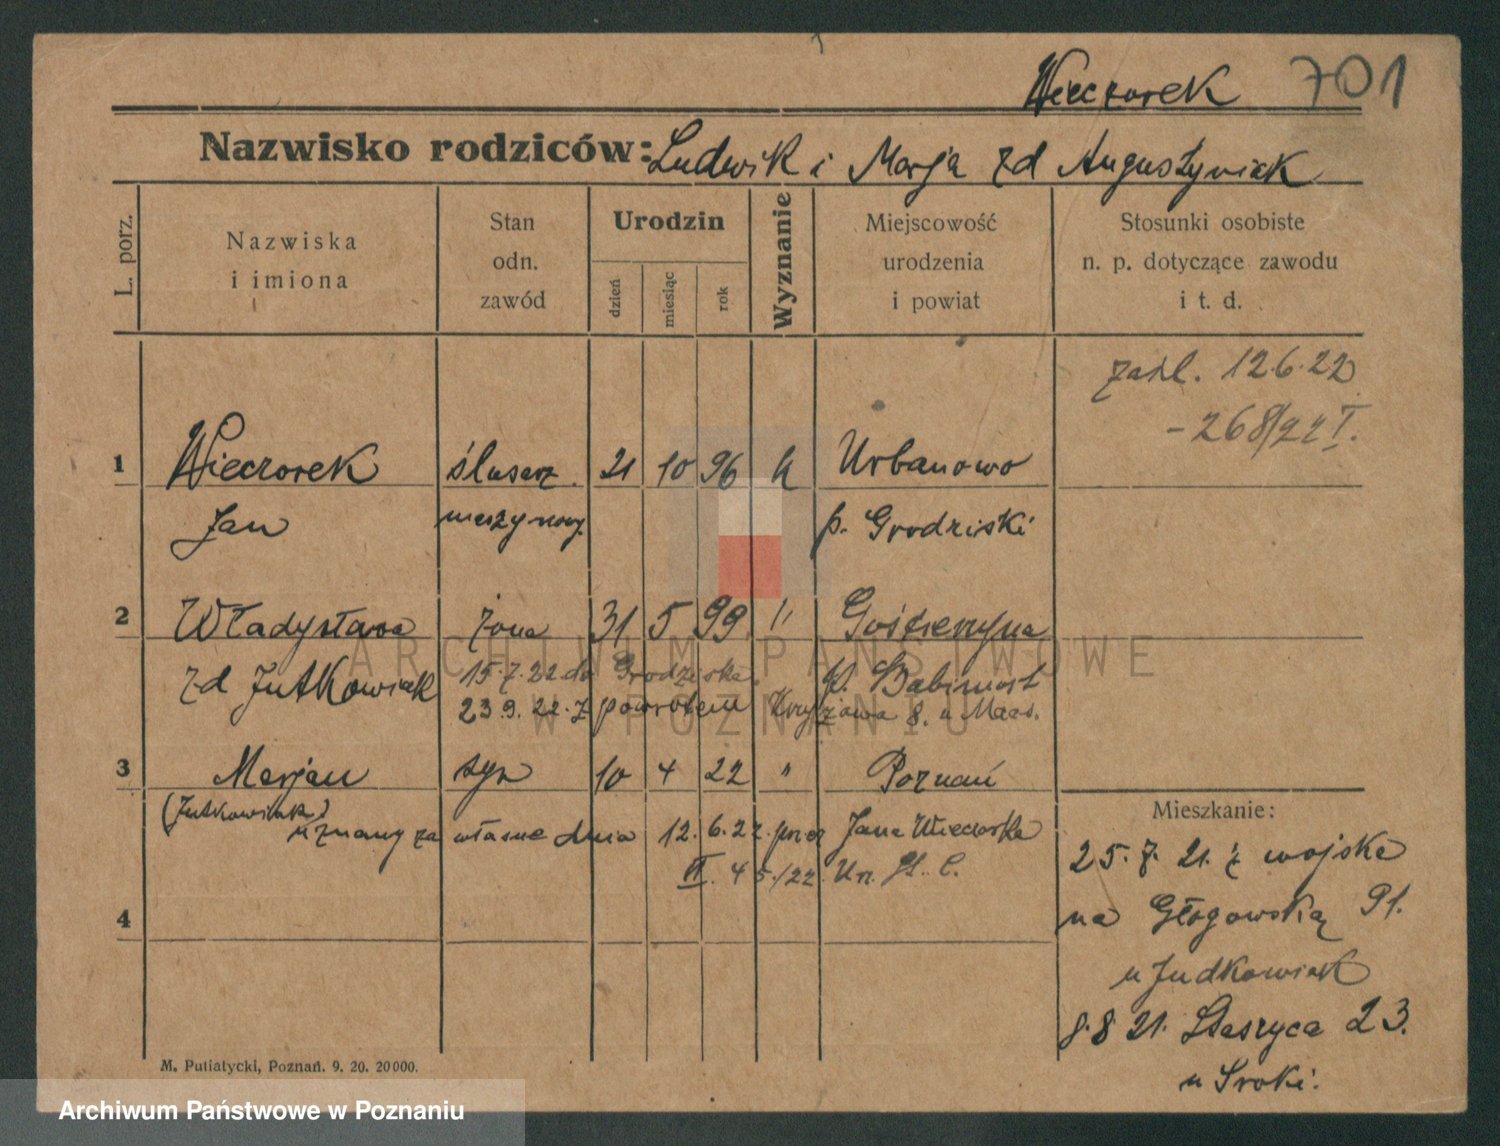 Wieczorek 701
Nazwisko rodziców: Ludwik i Marja zd Augustyniak
L. porz.
Nazwiska i imiona
Stan odn. zawód
Urodzin
dzień miesiąc rok
Wyznanie
Miejscowość urodzenia i powiat
Stosunki osobiste n. p. dotyczące zawodu i t. d.
zaśl. 12.6.22
- 268/22 I.
1 Wieczorek ślusarz 21 10 96 k Urbanowo
Jan maszynowy. p. Grodziski
2 Władysława żona 31 5 99 " Gościeszyna
zd Jutkowiak 15.7.22 do Grodziska p. Babimost
23.9.22. z powrotem 8. u
3 Marjan syn 10 4 22 " Poznań
(Jutkowiak)
uznany za własne dnia 12.6.22. przez Jana Wieczorka
45/22. Urz. St. C.
4
Mieszkanie:
25.7.21. z wojska
na Głogowską 91.
u Judkowiak
8.8 21. Staszyca 23.
u Sroki.
M. Putiatycki, Poznań. 9. 20. 20000.
ARCHIWUM PAŃSTWOWE
W POZNANIU
Archiwum Państwowe w Poznaniu